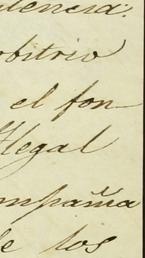 dencia.
rbitrio
el fon-
Ilegal
ompañia
de los